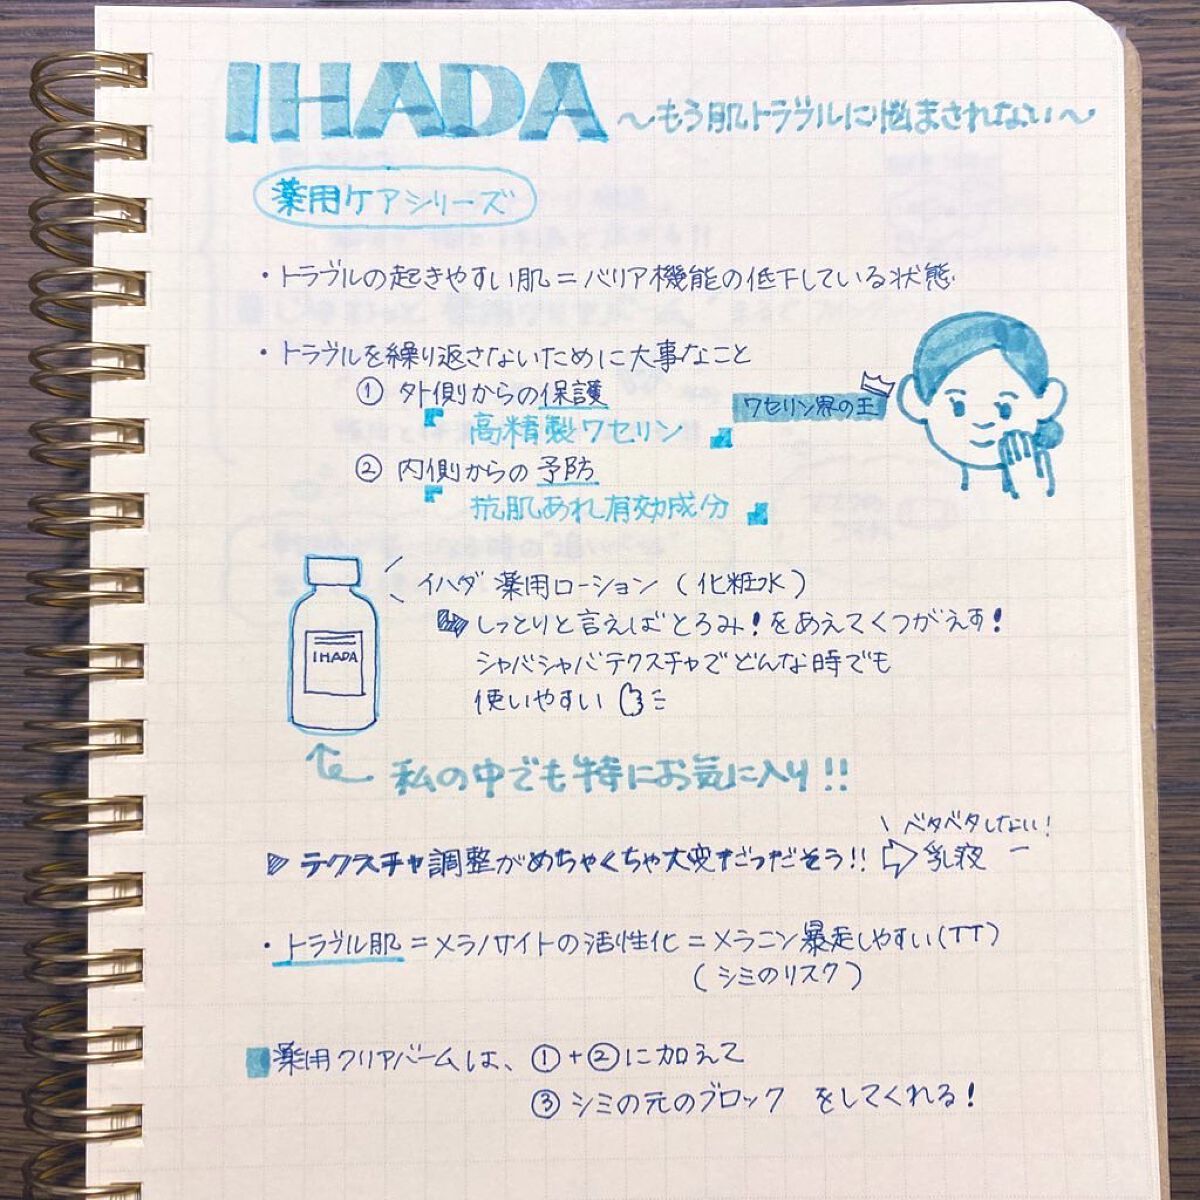 IHADA ～もう肌トラブルに悩まされない～
薬用ケアシリーズ
・トラブルの起きやすい肌＝バリア機能の低下している状態
・トラブルを繰り返さないために大事なこと
① 外側からの保護
『高精製ワセリン』
ワセリン界の王
② 内側からの予防
『抗肌あれ有効成分』
イハダ 薬用ローション（化粧水）
しっとりと言えばとろみ！をあえてくつがえす！
シャバシャバテクスチャでどんな時でも
使いやすい
IHADA
私の中でも特にお気に入り!!
テクスチャ調整がめちゃくちゃ大変だっだそう!! ⇨乳液
ベタベタしない！
・トラブル肌＝メラノサイトの活性化＝メラニン暴走しやすい(TT)
（シミのリスク）
薬用クリアバームは、①＋②に加えて
③シミの元のブロック をしてくれる！